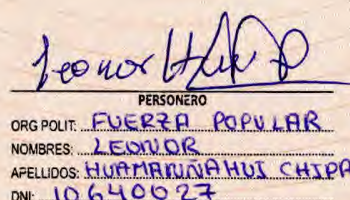 Leonor H
PERSONERO
ORG POLIT: FUERZA POPULAR
NOMBRES: LEONOR
APELLIDOS: HUAMANÑAHUI CHIPA
DNI: 10640027